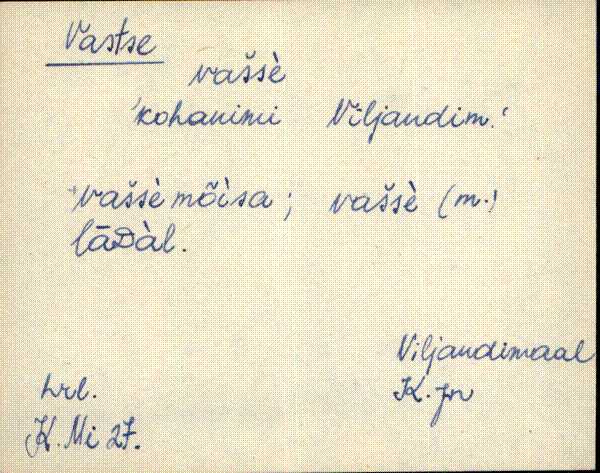 Vastse
vaššè
'kohanimi Viljandim.'
vaššè mõìsa; vaššè (m.)
lāᴅàl.
Viljandimaal
hrl. K. jn
K. Mi 27.